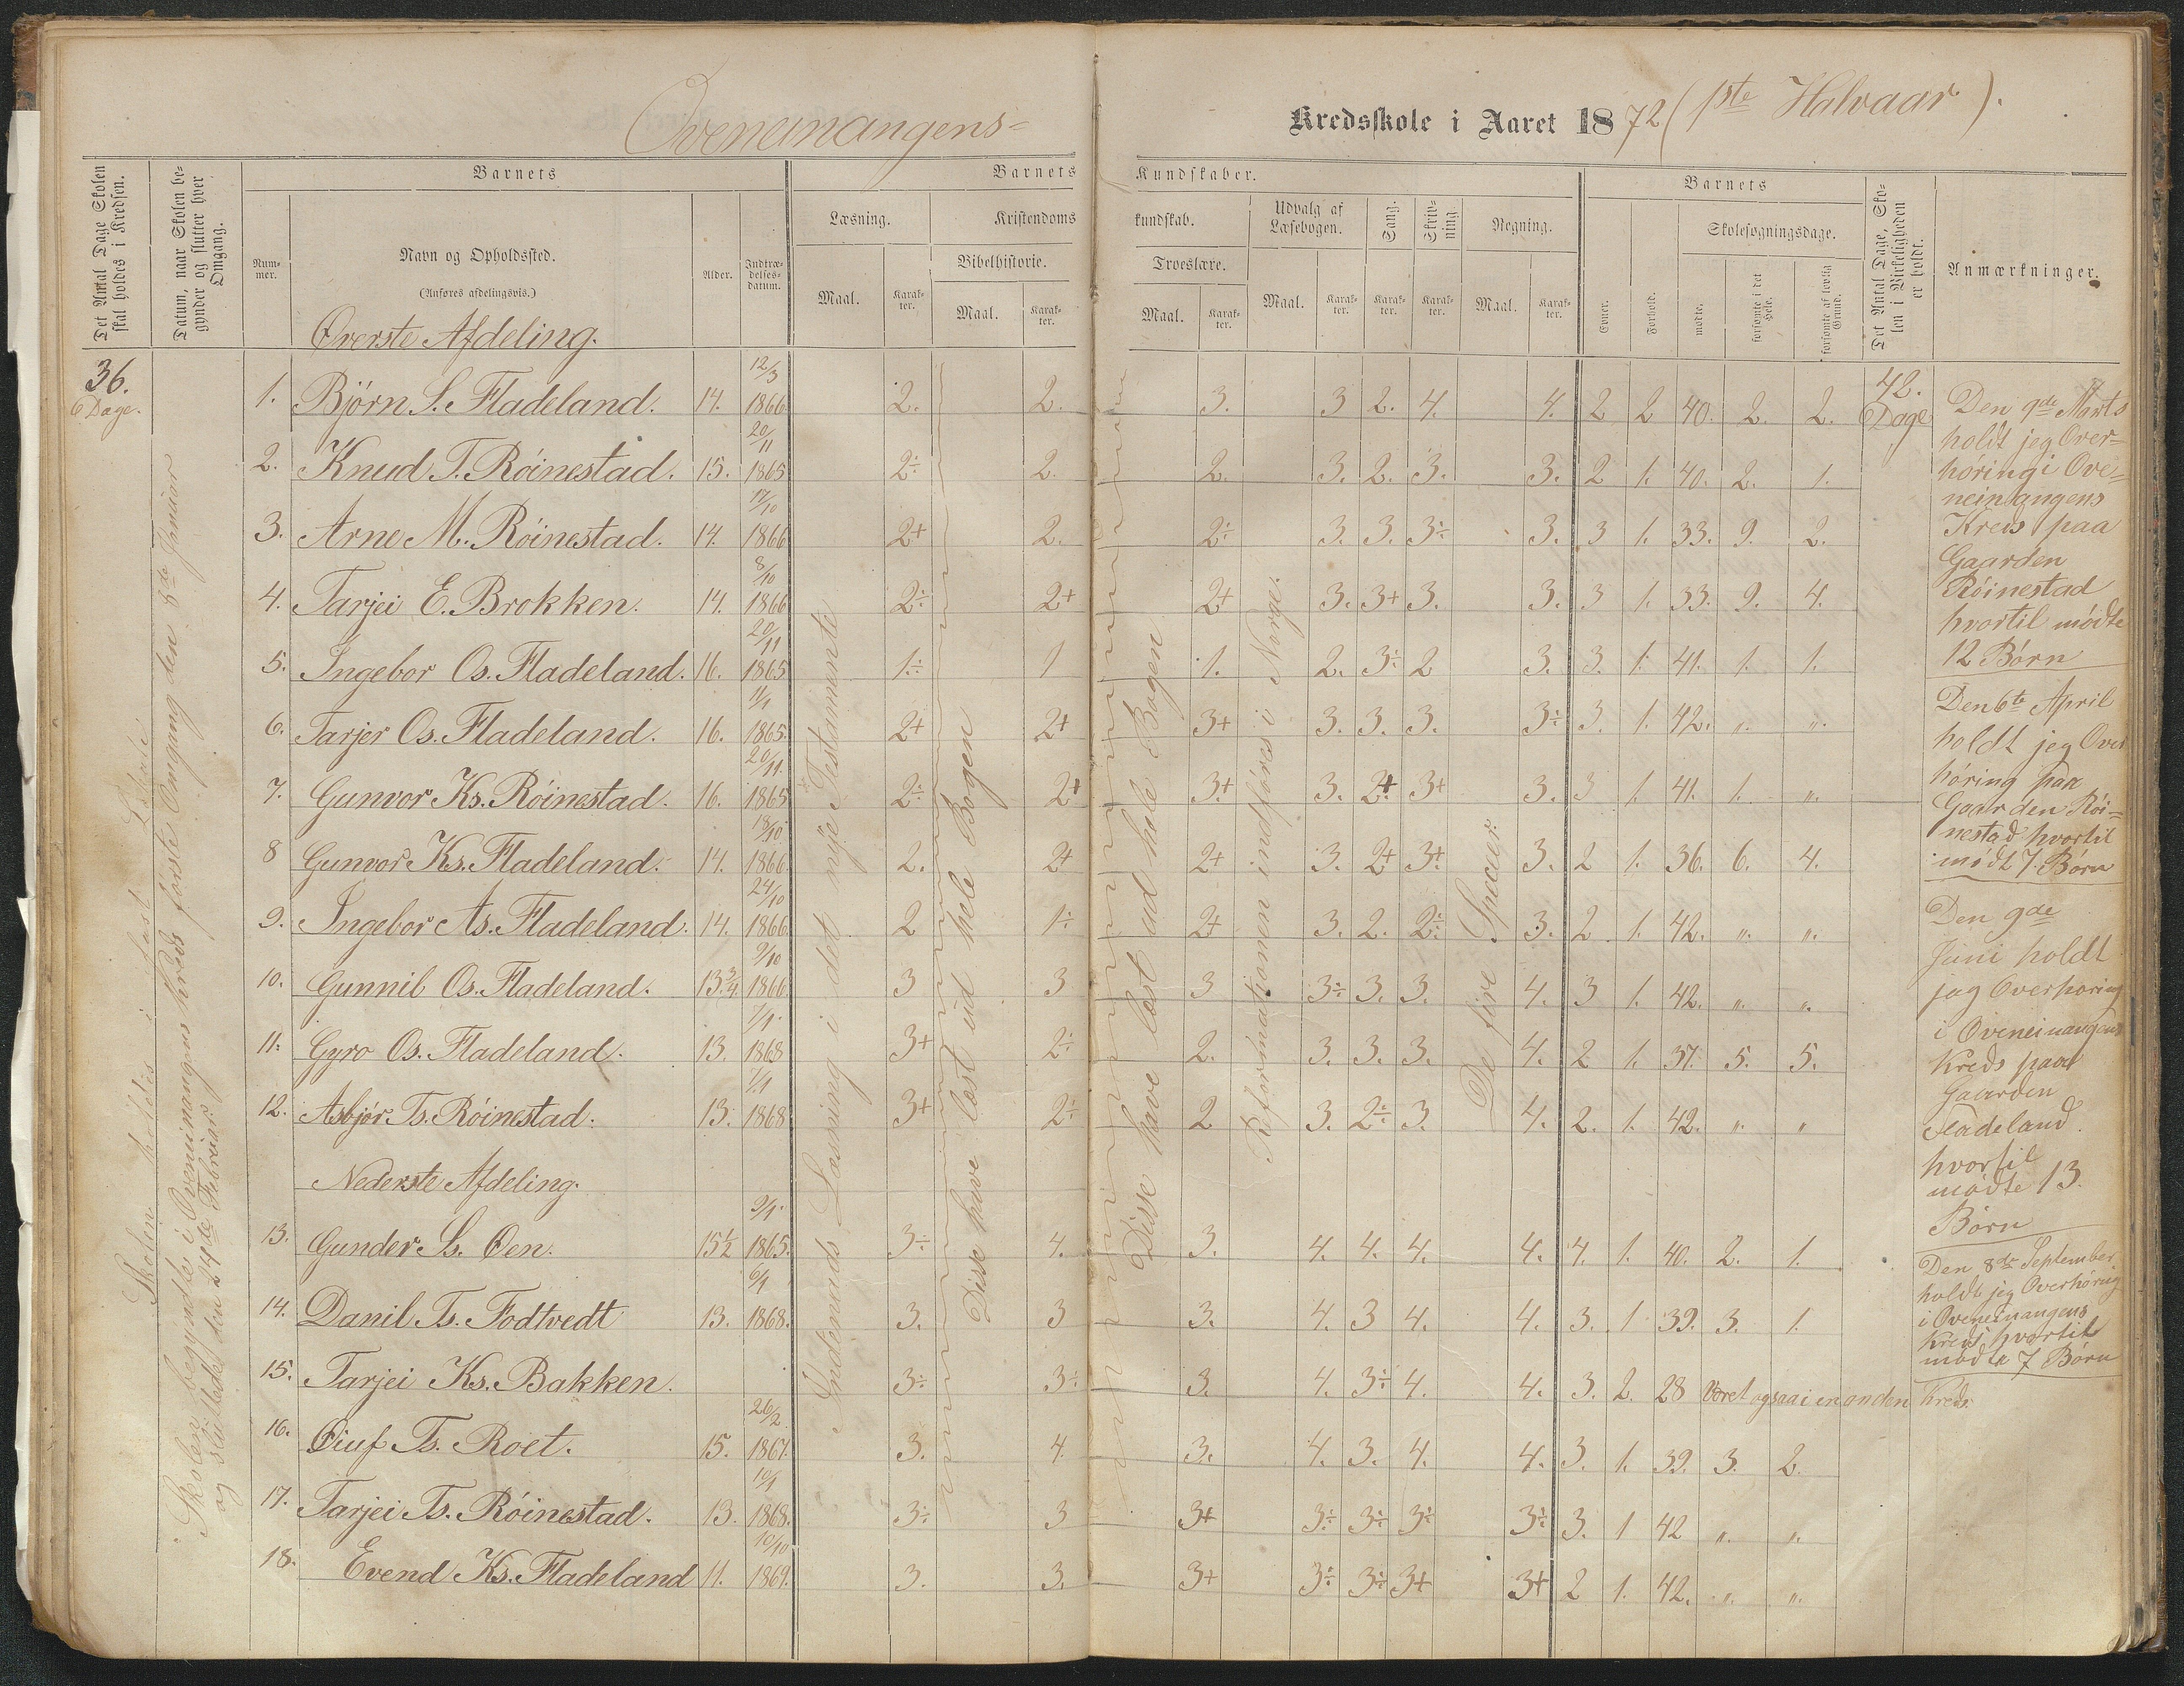 Oveneinangens-
Kredsskole i Aaret 1872 (1ste Halvaar).
Det Antal Dage Skolen skal holdes i Kredsen.
Datum, naar Skolen begynder og slutter hver Omgang.
Barnets
Nummer.
Navn og Opholdssted.
(Anføres afdelingsvis.)
Alder.
Indtrædelsesdatum.
Barnets Kundskaber.
Læsning.
Maal.
Karakter.
Kristendomskundskab.
Bibelhistorie.
Maal.
Karakter.
Troeslære.
Maal.
Karakter.
Udvalg af Læsebogen.
Maal.
Karakter.
Sang.
Karakter.
Skrivning.
Karakter.
Regning.
Maal.
Karakter.
Barnets
Evner.
Forhold.
Skolesøgningsdage.
mødte.
forsømte i det Hele.
forsømte af lovlig Grund.
Det Antal Dage, Skolen i Virkeligheden er holdt.
Anmærkninger.
36.
6 Dage.
Skolen holdtes i fast Lokale
Skolen begyndte i Oveneinangens Kreds første Omgang den 8de Januar
og sluttede den 24de Februar
Øverste Afdeling.
1. Bjørn S. Fladeland. 14. 12/3 1866. 2. 2. 3. 3 2. 4. 4. 2 2 40. 2. 2.
2. Knud T. Róinestad. 15. 20/11 1865 2÷ 2. 2. 3. 2. 3. 3. 2 1. 40. 2. 1.
3. Arne M. Róinestad. 14. 17/10 1866 2+ 2. 2÷ 3. 3. 3÷ 3. 3 1. 33. 9. 2.
4. Tarjei E. Brokken. 14. 8/10 1866 2÷ 2+ 2+ 3. 3+ 3. 3. 3 1. 33. 9. 4.
5. Ingebor Os. Fladeland. 16. 20/11 1865 1÷ 1 1. 2. 3÷ 2 3. 3. 1. 41. 1. 1.
6. Tarjer Os. Fladeland. 16. 11/1 1865. 2+ 2+ 3+ 3. 3. 3. 3÷ 3. 1. 42. ". ".
7. Gunvor Ks. Róinestad. 16. 20/11. 1865 2÷ 2+ 3+ 3. 2+ 3+ 3. 3 1. 41. 1. ".
8 Gunvor Ks. Fladeland. 14. 18/10 1866. 2. 2+ 2+ 3. 2+ 3+. 3. 2 1. 36. 6. 4.
9. Ingebor As. Fladeland. 14. 24/10 1866. 2 1÷ 2+ 3. 2. 2÷ 3. 2 1. 42. ". ".
10. Gunnil Os. Fladeland. 13 3/4. 9/10 1866. 3 3 3 3÷ 3. 3. 4. 3 1. 42. ". ".
11. Gyro Os. Fladeland. 13. 7/1. 1868 3+ 2÷ 2. 3. 3. 3. 4. 2 1. 37. 5. 5.
12. Asbjør Ts. Róinestad. 13. 7/1 1868 3+ 2÷ 2 3. 2÷ 3. 4. 2. 1. 42. ". "
Nederste Afdeling.
13. Gunder Ss. Øen. 15 1/2 9/1. 1865. 3÷ 4. 3. 4. 4. 4. 4. 4. 1. 40. 2. 1.
14. Danil Ts. Fodtvedt 13. 6/1 1868. 3. 3 3. 4. 3 4. 4. 3. 1 39. 3. 1.
15. Tarjei Ks. Bakken. 3÷ 3÷ 3. 4. 3÷ 4. 4. 3. 2. 28 Været ogsaa i en anden Kreds.
16. Oiuf Ts. Roet. 15. 26/2 1867. 3. 4. 3. 4. 3. 4. 4. 3. 1. 39. 3. 2.
17. Tarjei Ts. Róinestad. 13. 10/1 1868. 3÷ 3 3+ 3÷ 3÷ 3÷ 3÷ 3. 1 42 ". ".
18. Evend Ks. Fladeland 11. 10/10 1869. 3. 3. 3+ 3÷ 3÷ 3+ 3+ 2 1. 42. ". ".
Indenads Læsning i det nÿe Testamente
Disse have læst ud hele Bogen
Disse have læst ud hele Bogen
Reformationen indføres i Norge.
De fire Specier.
42.
Dage
Den 9de Marts
holdt jeg Over-
høring i Ove-
neinangens
Kreds paa
Gaarden
Róinestad
hvortil mødte
12 Børn
Den 6te April
holdt jeg Over
høring paa
Gaarden Rói-
nestad hvortil
mødt 7. Børn
Den 9de
Juni holdt
jeg Overhøring
i Oveneinangens
Kreds paa
Gaarden
Fladeland.
hvortil
mødte 13.
Børn
Den 8de September
holdt jeg Overhøring
i Oveneinangens
Kreds hvortil
mødte 7 Børn